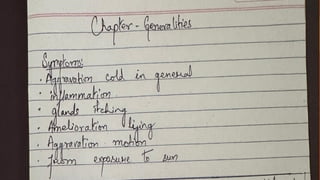 Chapter - Generalities
Symptoms:
• Aggravation cold in general
• inflammation
• glands itching
• Amelioration lying
• Aggravation motion
• from exposure to sun